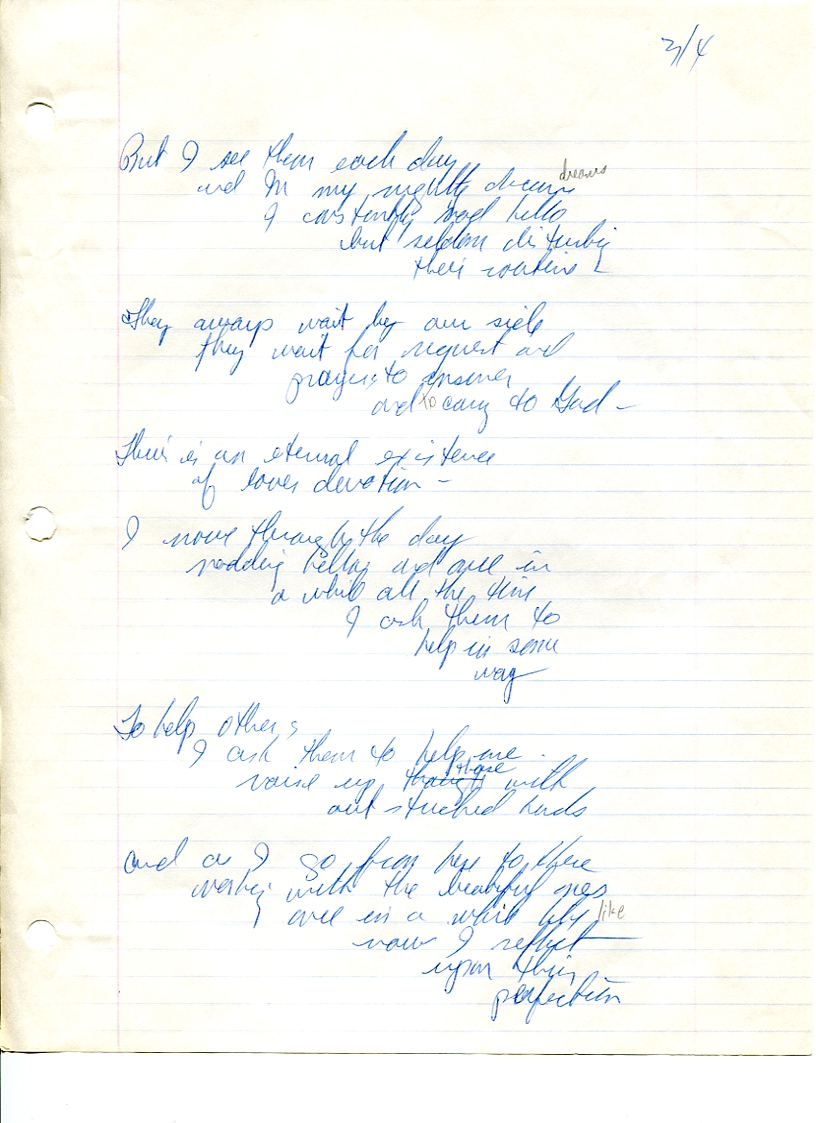 3/4
But I see them each day
and in my nightly dreams dreams
I constantly nod hello
but seldom disturbing
their routine
They always wait by our side
they wait for request and
prayers to answer
and to carry to God -
Theirs is an eternal existence
of loves devotion -
I move through the day
nodding hellos and once in
a while all the time
I ask them to
help in some
way
To help others
I ask them to help me
raise up those with
out streched hands
and as I go from here to there
working with the beautiful ones
once in a while like like
now I reflect
upon their
perfection